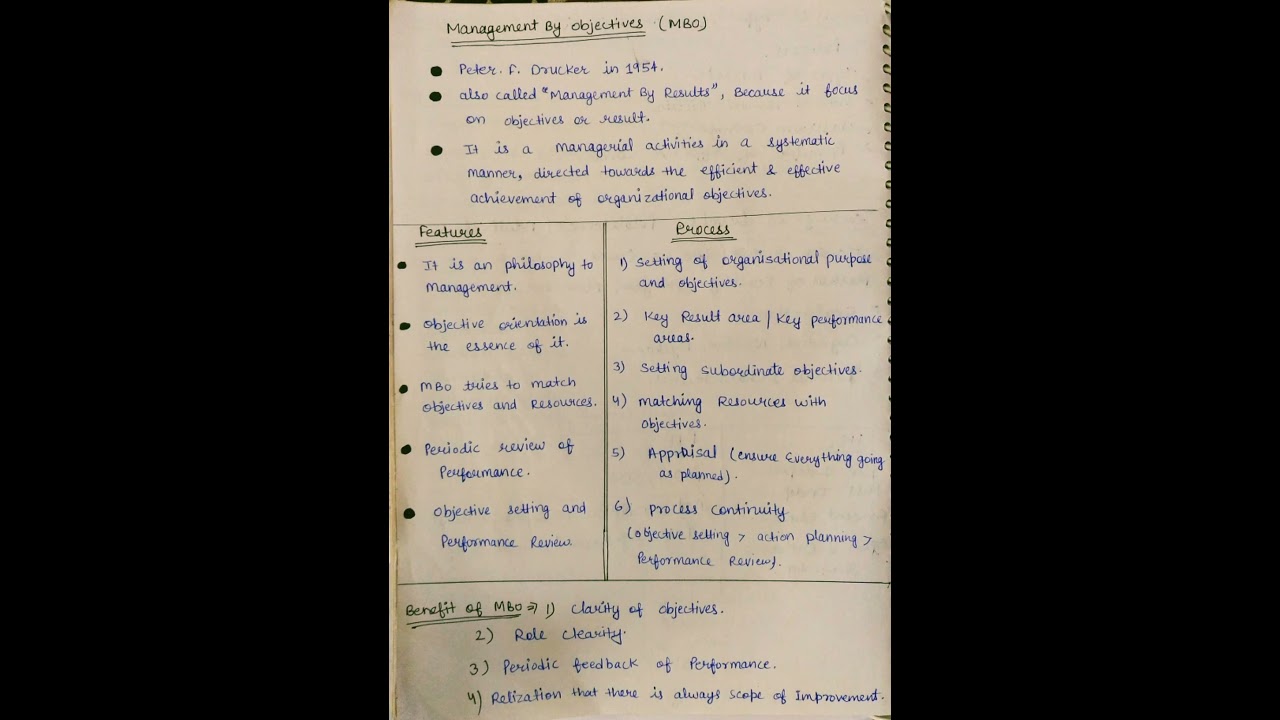 Management By Objectives (MBO)
Peter. F. Drucker in 1954.
also called "Management By Results", Because it focus
on objectives or result.
It is a managerial activities in a systematic
manner, directed towards the efficient & effective
achievement of organizational objectives.
Features
It is an philosophy to
Management.
Objective orientation is
the essence of it.
MBO tries to match
Objectives and Resources.
Periodic review of
Performance.
Objective setting and
Performance Review.
Process
1) Setting of organisational purpose
and objectives.
2) Key Result area / Key performance
areas.
3) Setting subordinate objectives.
4) Matching Resources with
Objectives.
5) Appraisal (ensure Everything going
as planned).
6) Process continuity
(Objective setting > action planning >
Performance Review).
Benefit of MBO ⇒ 1) Clarity of objectives.
2) Role clearity.
3) Periodic feedback of Performance.
4) Relization that there is always scope of Improvement.